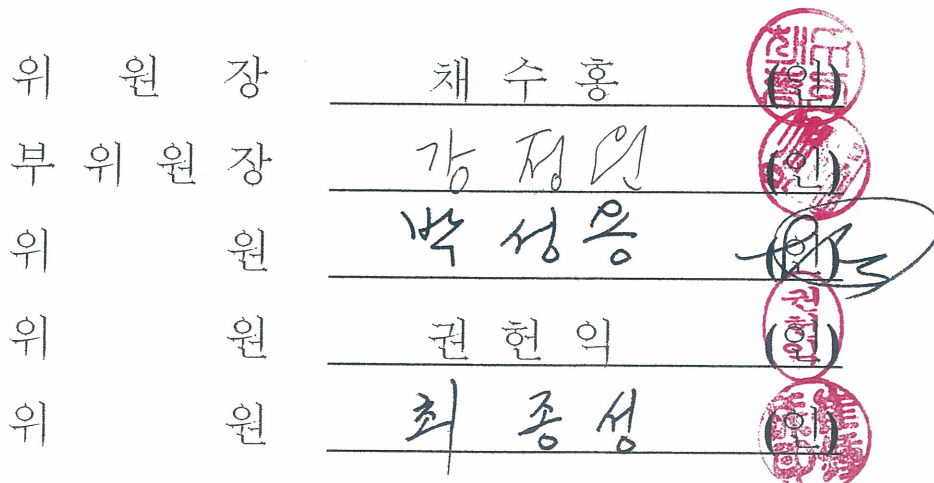 위 원 장 채 수 홍 (인)
부 위 원 장 강 정 원 (인)
위 원 박 성 용 (인)
위 원 권 헌 익 (인)
위 원 최 종 성 (인)